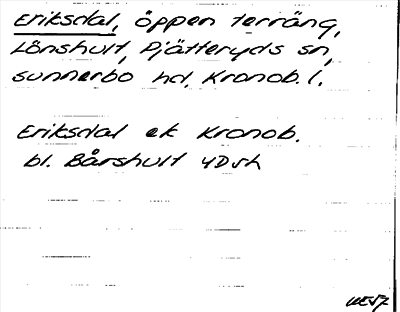 Eriksdal, öppen terräng,
Lönshult, Pjätteryds sn,
Sunnerbo hd, Kronob. l.
Eriksdal ek Kronob.
bl. Bårshult 4D5h